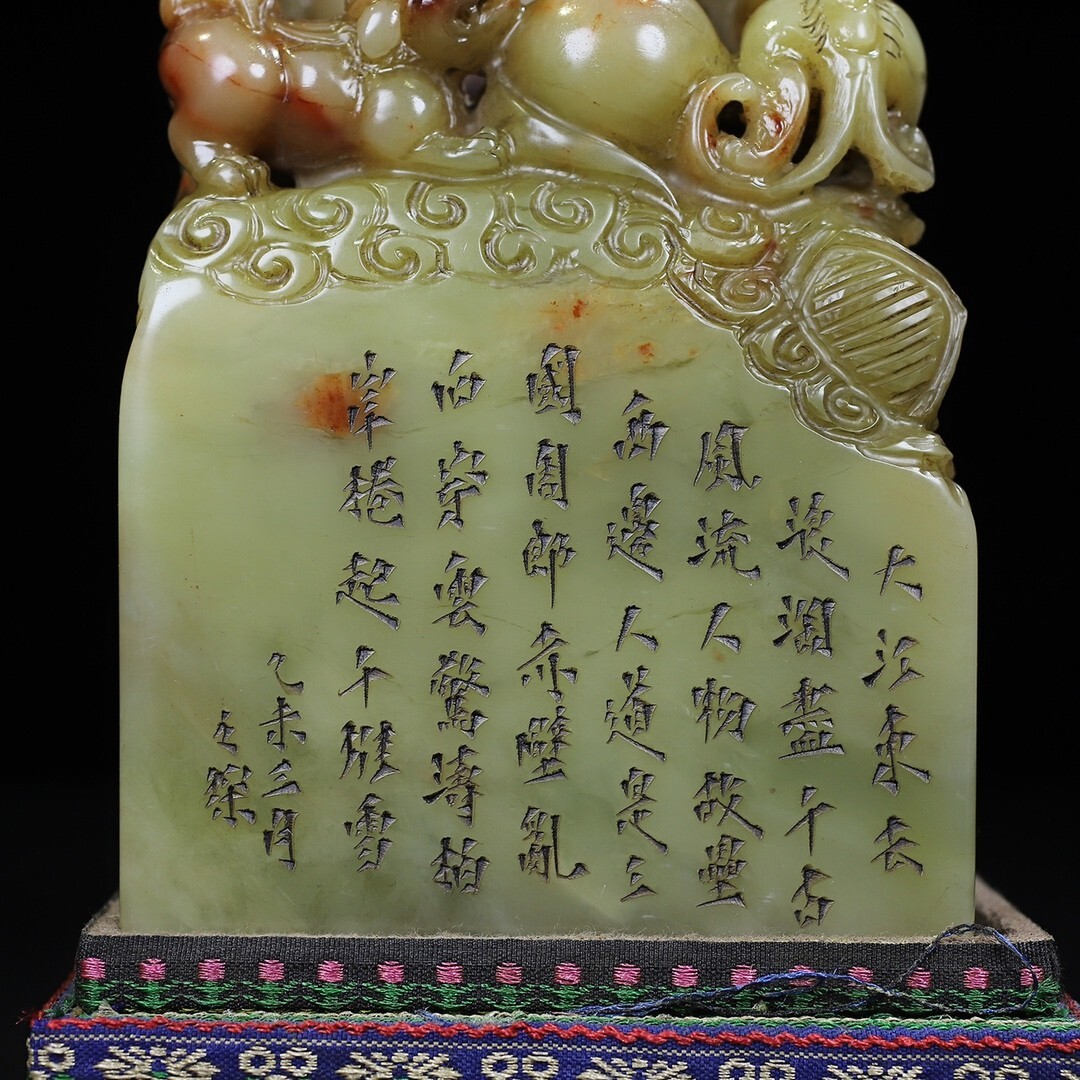 大江東去
浪淘盡千古
風流人物故壘
西邊人道是三
國周郎赤壁亂
石穿雲驚濤拍
岸捲起千堆雪
乙未三月
之琛